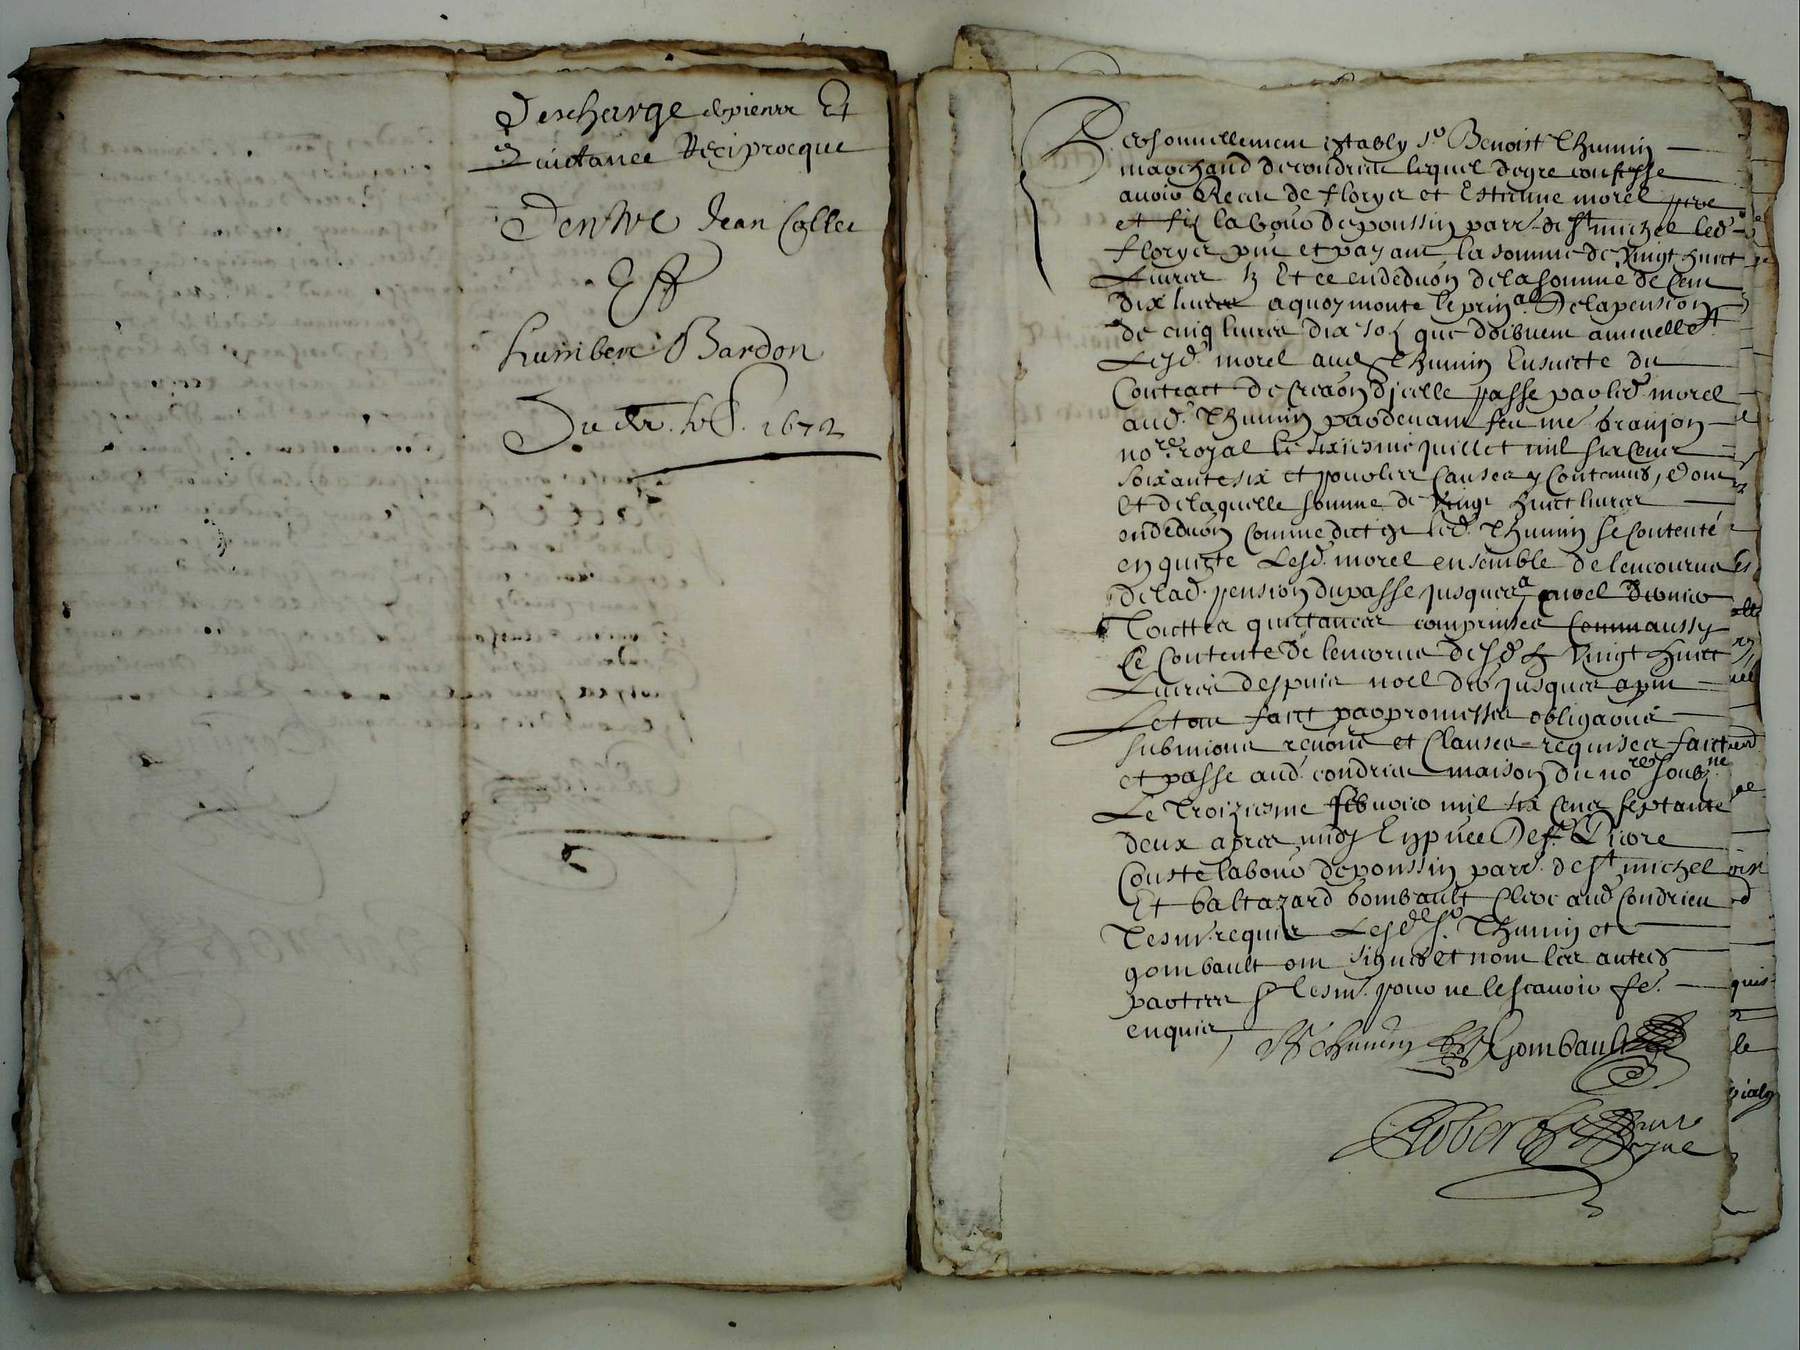 Descharge de pieces Et
Quictance Reciprocque
Jean Collet
Et
humbert Bardon
Du 1672
Personnellement estably Sr Benoist Thumin
marchand de condrieu lequel de gre confesse
avoir Receu de floryer et Estienne morel pere
et filz labour de poussin parr. de St michel led.
floryer pnt et payant la somme de vingt huict
Livres Et ce en deduon de la somme de Cent
dix livres a quoy monte le prin.al De la pension
de cinq livres dix solz que doibvent annuellemt
Lesd. morel aud. Thumin Ensuicte du
Contract de Creaon d'icelle passe par led. morel
aud. Thumin pardevant feu me branjon
no.re Royal le sixiesme juillet mil six cent
soixante six et pour les causes y contenus, dont
et de laquelle somme de vingt huict livres
en deduon comme dict est led. Thumin se contente
en quicte Lesd. morel ensemble de lencourue
de lad. pension du passe jusques a noel dernier
Touttes quictances comprinses aussy
se contente de lencorue desd. vingt huict
Livres despuis noel der jusques a pnt
Le tout faict par promesses obligaons
submions renons et Clauses requises faict
et passe aud. condrieu maison du no.re soubz.ne
Le Troiziesme febvrier mil six cens septante
deux apres midy En pnce De Sr
Couste labour de poussin parr. de St michel
Et baltazard gombault Clerc aud. Condrieu
Tesm. requis Lesd. Sr Thumin et
gombault ont signes et non les autres
parties & tesm. pour ne le scavoir de ce
enquis
B Thumin Gombault
Robert